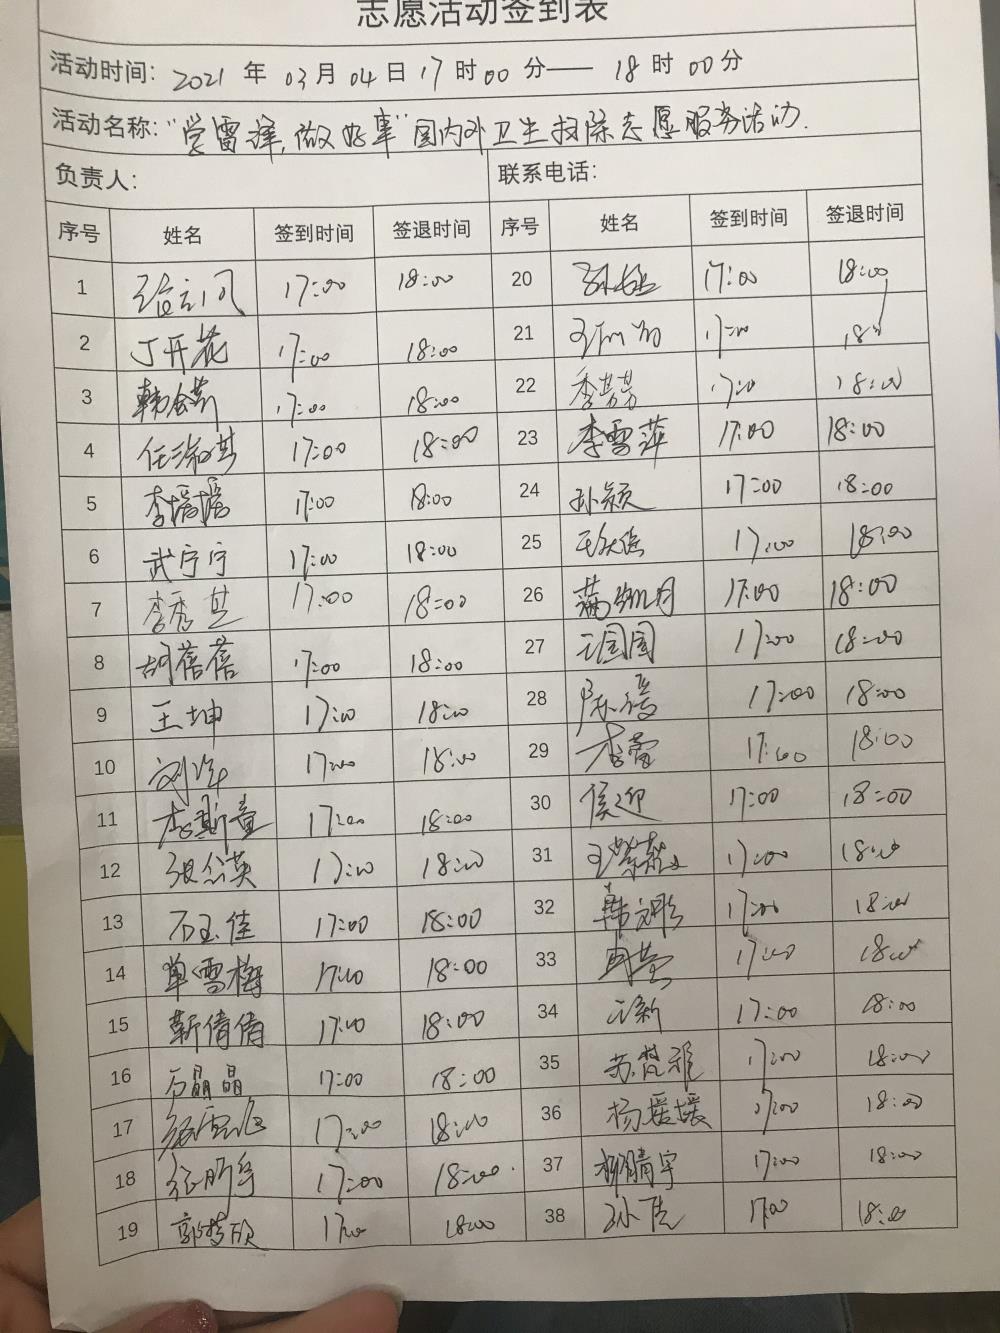 志愿活动签到表
活动时间：2021年03月04日17时00分——18时00分
活动名称："学雷锋,做好事"园内外卫生扫除志愿服务活动.
负责人： 联系电话：
序号 姓名 签到时间 签退时间 序号 姓名 签到时间 签退时间
1 17:00 18:00 20 17:00 18:00
2 丁开花 17:00 18:00 21 17:00 18:00
3 17:00 18:00 22 季芳芳 17:00 18:00
4 17:00 18:00 23 李雪萍 17:00 18:00
5 李媛媛 17:00 18:00 24 孙颖 17:00 18:00
6 武宁宁 17:00 18:00 25 17:00 18:00
7 李秀芝 17:00 18:00 26 17:00 18:00
8 胡蓓蓓 17:00 18:00 27 王园园 17:00 18:00
9 王坤 17:00 18:00 28 17:00 18:00
10 17:00 18:00 29 李蕾 17:00 18:00
11 李斯童 17:00 18:00 30 侯迎 17:00 18:00
12 17:00 18:00 31 17:00 18:00
13 石玉佳 17:00 18:00 32 17:00 18:00
14 单雪梅 17:00 18:00 33 17:00 18:00
15 靳倩倩 17:00 18:00 34 王新 17:00 18:00
16 石晶晶 17:00 18:00 35 苏梵雅 17:00 18:00
17 17:00 18:00 36 杨媛媛 17:00 18:00
18 17:00 18:00 37 柳晴宇 17:00 18:00
19 17:00 18:00 38 17:00 18:00